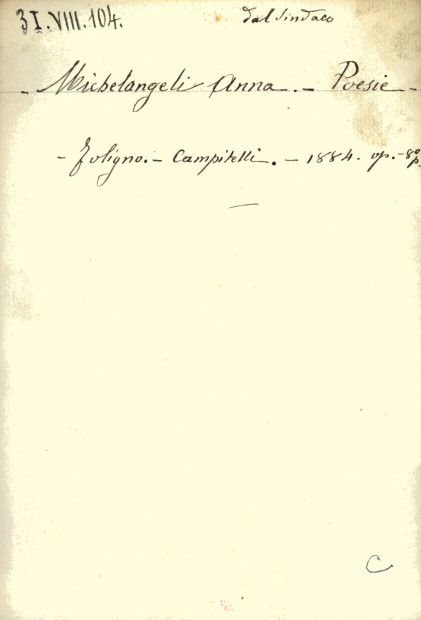 3I.VIII.104. dal Sindaco
- Michelangeli Anna. - Poesie -
- Foligno. - Campitelli. - 1884. op. - 8º p.
C